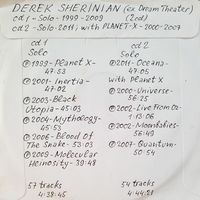 DEREK SHERINIAN (ex Dream Theater)
cd1 - Solo - 1999-2009 (2cd)
cd2 - Solo-2011, with PLANET-X - 2000-2007
cd 1
Solo
℗ 1999 - Planet X -
47-53
℗ 2001 - Inertia -
47-02
℗ 2003 - Black
Utopia - 45-03
℗ 2004 - Mythology -
45-53
℗ 2006 - Blood Of
The Snake - 53-03
℗ 2009 - Molecular
Heinosity - 39-48
57 tracks
4:38:45
cd 2
Solo
℗ 2011 - Oceana -
47-05
with Planet X
℗ 2000 - Universe -
56-25
℗ 2002 - Live From Oz -
1-13-06
℗ 2002 - Moonbabies -
56-49
℗ 2007 - Quantum -
50-54
54 tracks
4:44:21